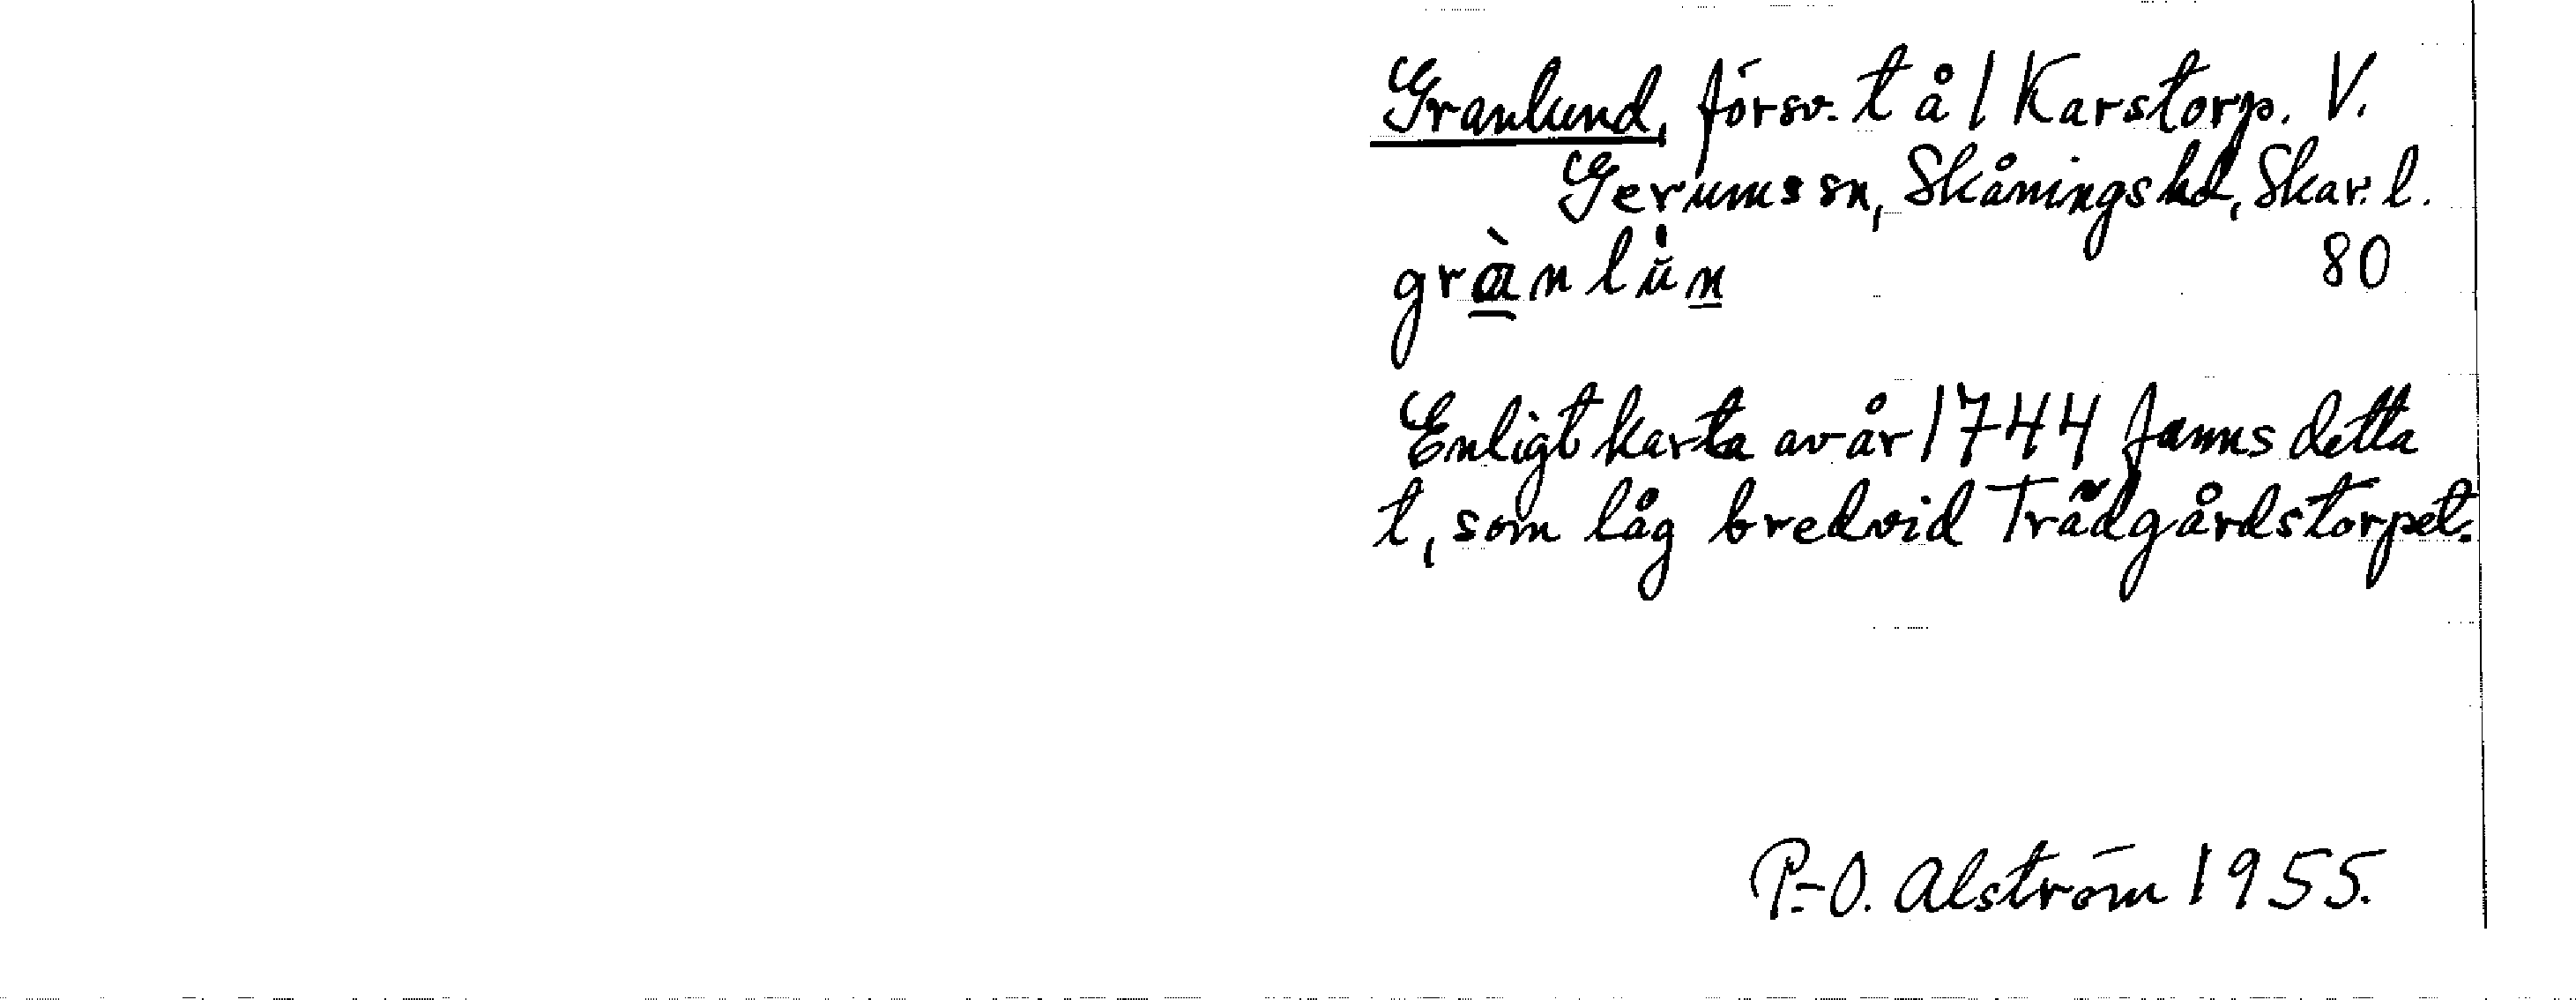 Granlund, försv. t å 1 Karstorp. V.
Gerums sn, Skånings hd, Skar. l.
grànlu̇n 80
Enligt karta av år 1744 fanns detta
t, som låg bredvid Trädgårdstorpet.
P.-O. Alström 1955.